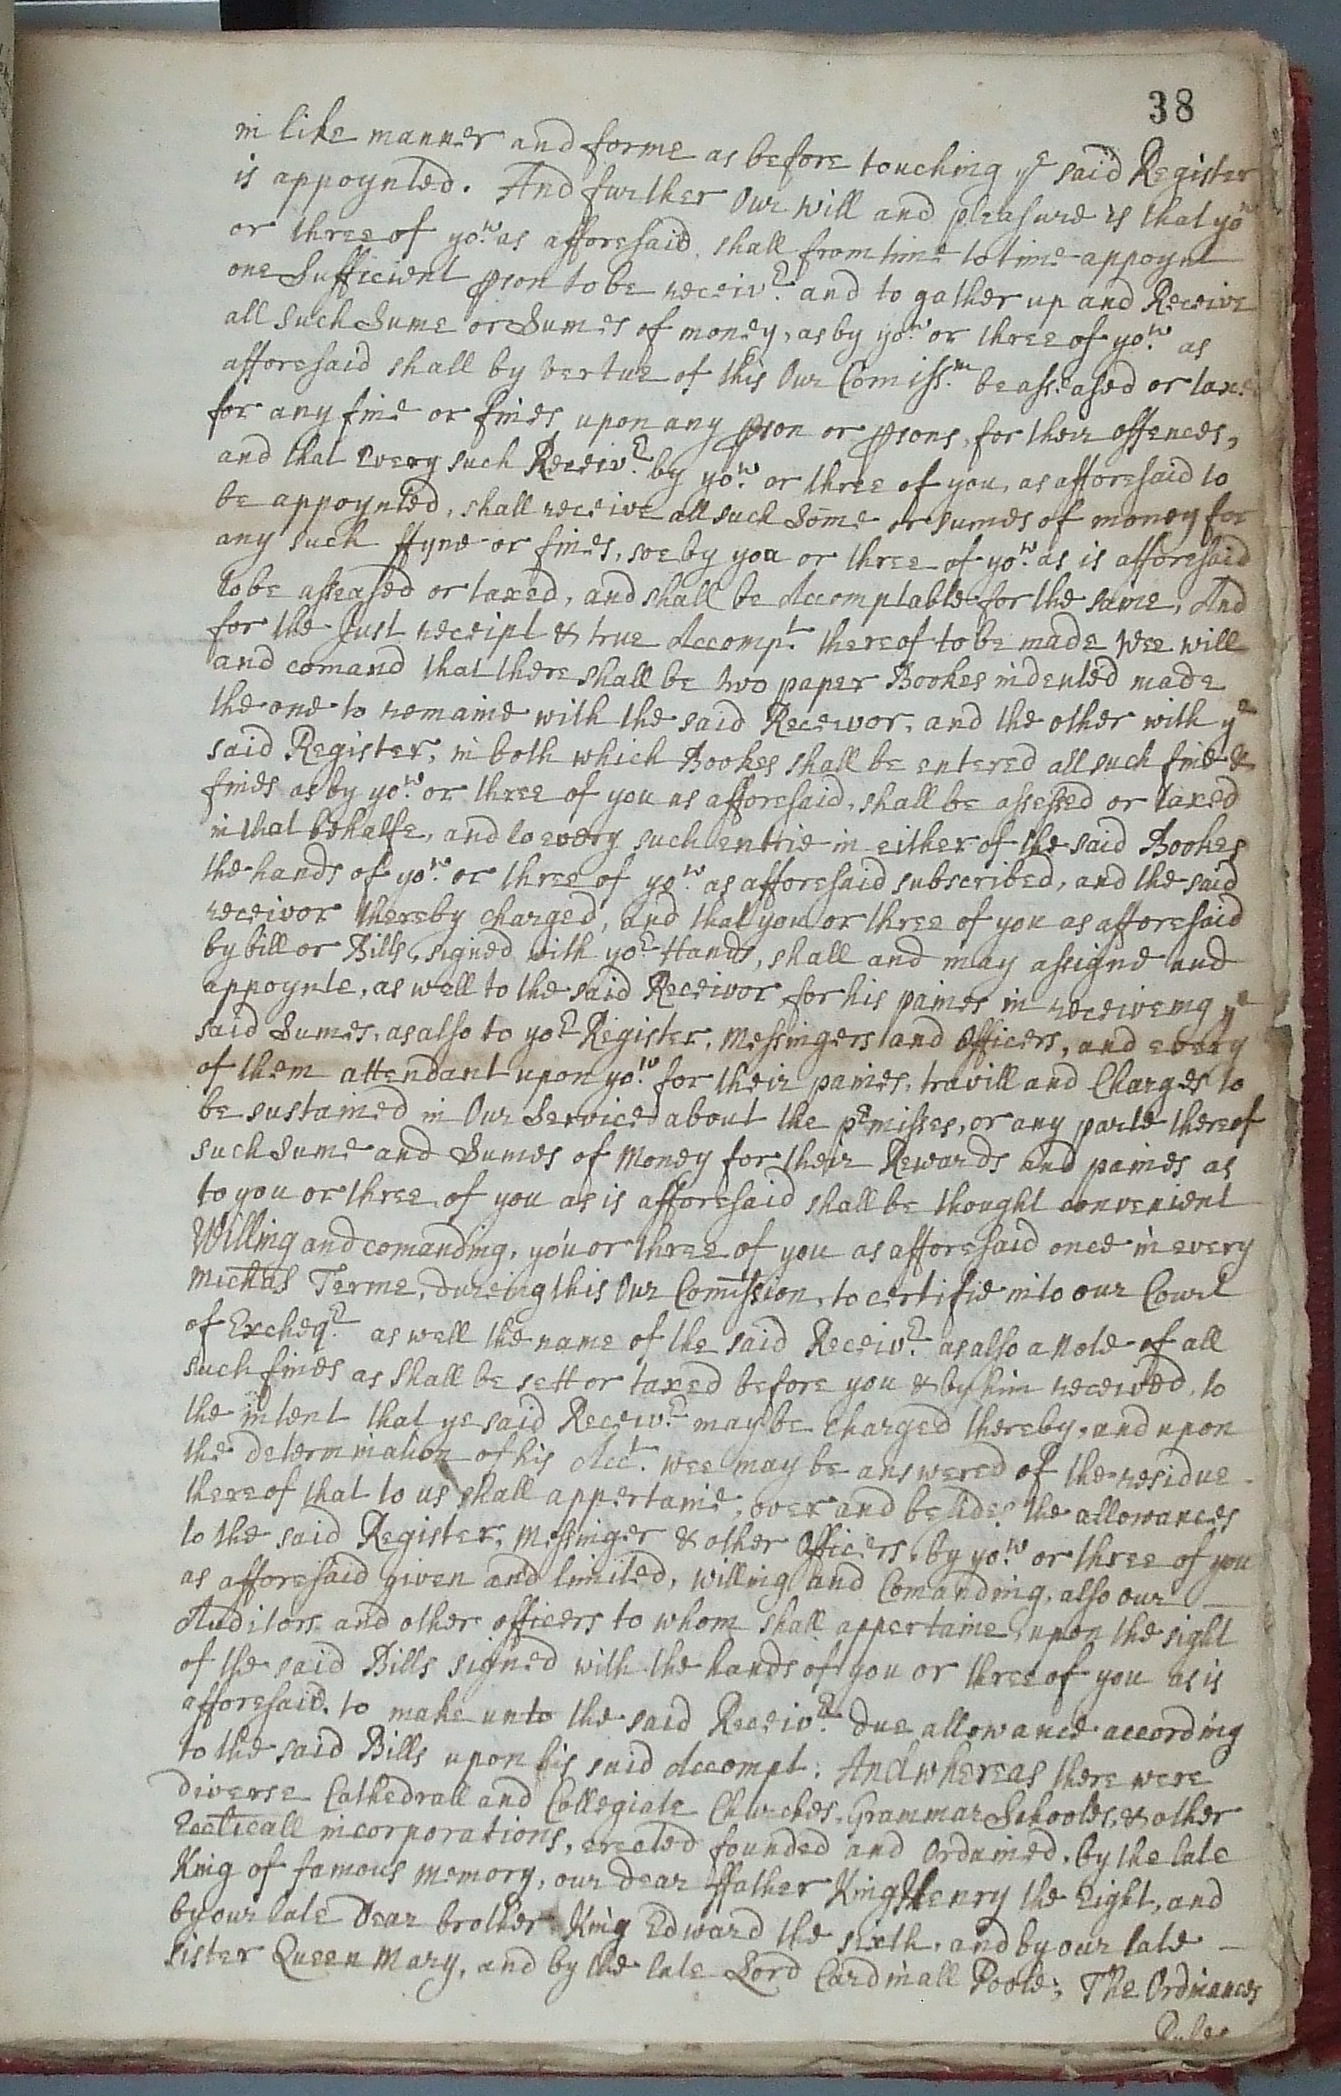 38
in like manner and forme as before touching ye said Register
is appoynted. And further Our will and pleasure is that yow
or three of yow. as afforesaid, shall from time to time appoynt
one Sufficient pson to be receivr. and to gather up and Receive
all such Sume or Sumes of money, as by yow. or three of yow. as
afforesaid shall by vertue of this Our Comissn. be asseased or taxed
for any fine or fines, upon any pson or psons, for their offences,
and that every such Receivr. by yow. or three of you, as afforesaid to
be appoynted, shall receive all such Some or sumes of money for
any such ffyne or fines, soe by you or three of yow. as is afforesaid
to be asseased or taxed, and shall be Accomptable for the same, And
for the Just receipt & true Accompt. thereof to be made Wee will
and comand that there shall be two paper Bookes indented made
the one to remaine with the said Receivor, and the other with ye
said Register, in both which Bookes shall be entered all such fine &
fines as by yow. or three of you as afforesaid, shall be assessed or taxed
in that behalfe, and to every such entrie in either of the said Bookes
the hands of yow. or three of yow. as afforesaid subscribed, and the said
receivor thereby charged, and that you or three of you as afforesaid
by bill or Bills, signed with yor Hands, shall and may assigne and
appoynte, as well to the said Receivor for his paines in receiveing ye
said Sumes, as also to yor Register, Messingers and Officers, and every
of them attendant upon yow. for their paines, travill and Charges to
be sustained in Our Service about the prmisses, or any parte thereof
such Sume and Sumes of Money for their Rewards and paines as
to you or three of you as is afforesaid shall be thought convenient
Willing and comanding, you or three of you as afforesaid once in every
Michas Terme, dureing this Our Comission, to certifie into our Court
of Excheqr. as well the name of the said Receivr. as also a Note of all
such fines as shall be sett or taxed before you & by him received, to
the intent that ye said Receivr. may be charged thereby, and upon
the determination of his Acct. wee may be answered of the residue
thereof that to us shall appertaine, over and besides the allowances
to the said Register, Messinger & other Officers, by yow. or three of you
as afforesaid given and limited, willing and Comanding, also our
Auditors and other officers to whom shall appertaine, upon the sight
of the said Bills signed with the hands of you or three of you as is
afforesaid, to make unto the said Receivr. due allowance according
to the said Bills upon his said Accompt: And whereas there were
diverse Cathedrall and Collegiate Churches, Grammar Schooles, & other
Eccticall incorporations, erected founded and Ordained, by the late
King of famous memory, our dear ffather King Henry the Eight, and
by our late Dear brother King Edward the sixth, and by our late
sister Queen Mary, and by the late Lord Cardinall Poole; The Ordinances